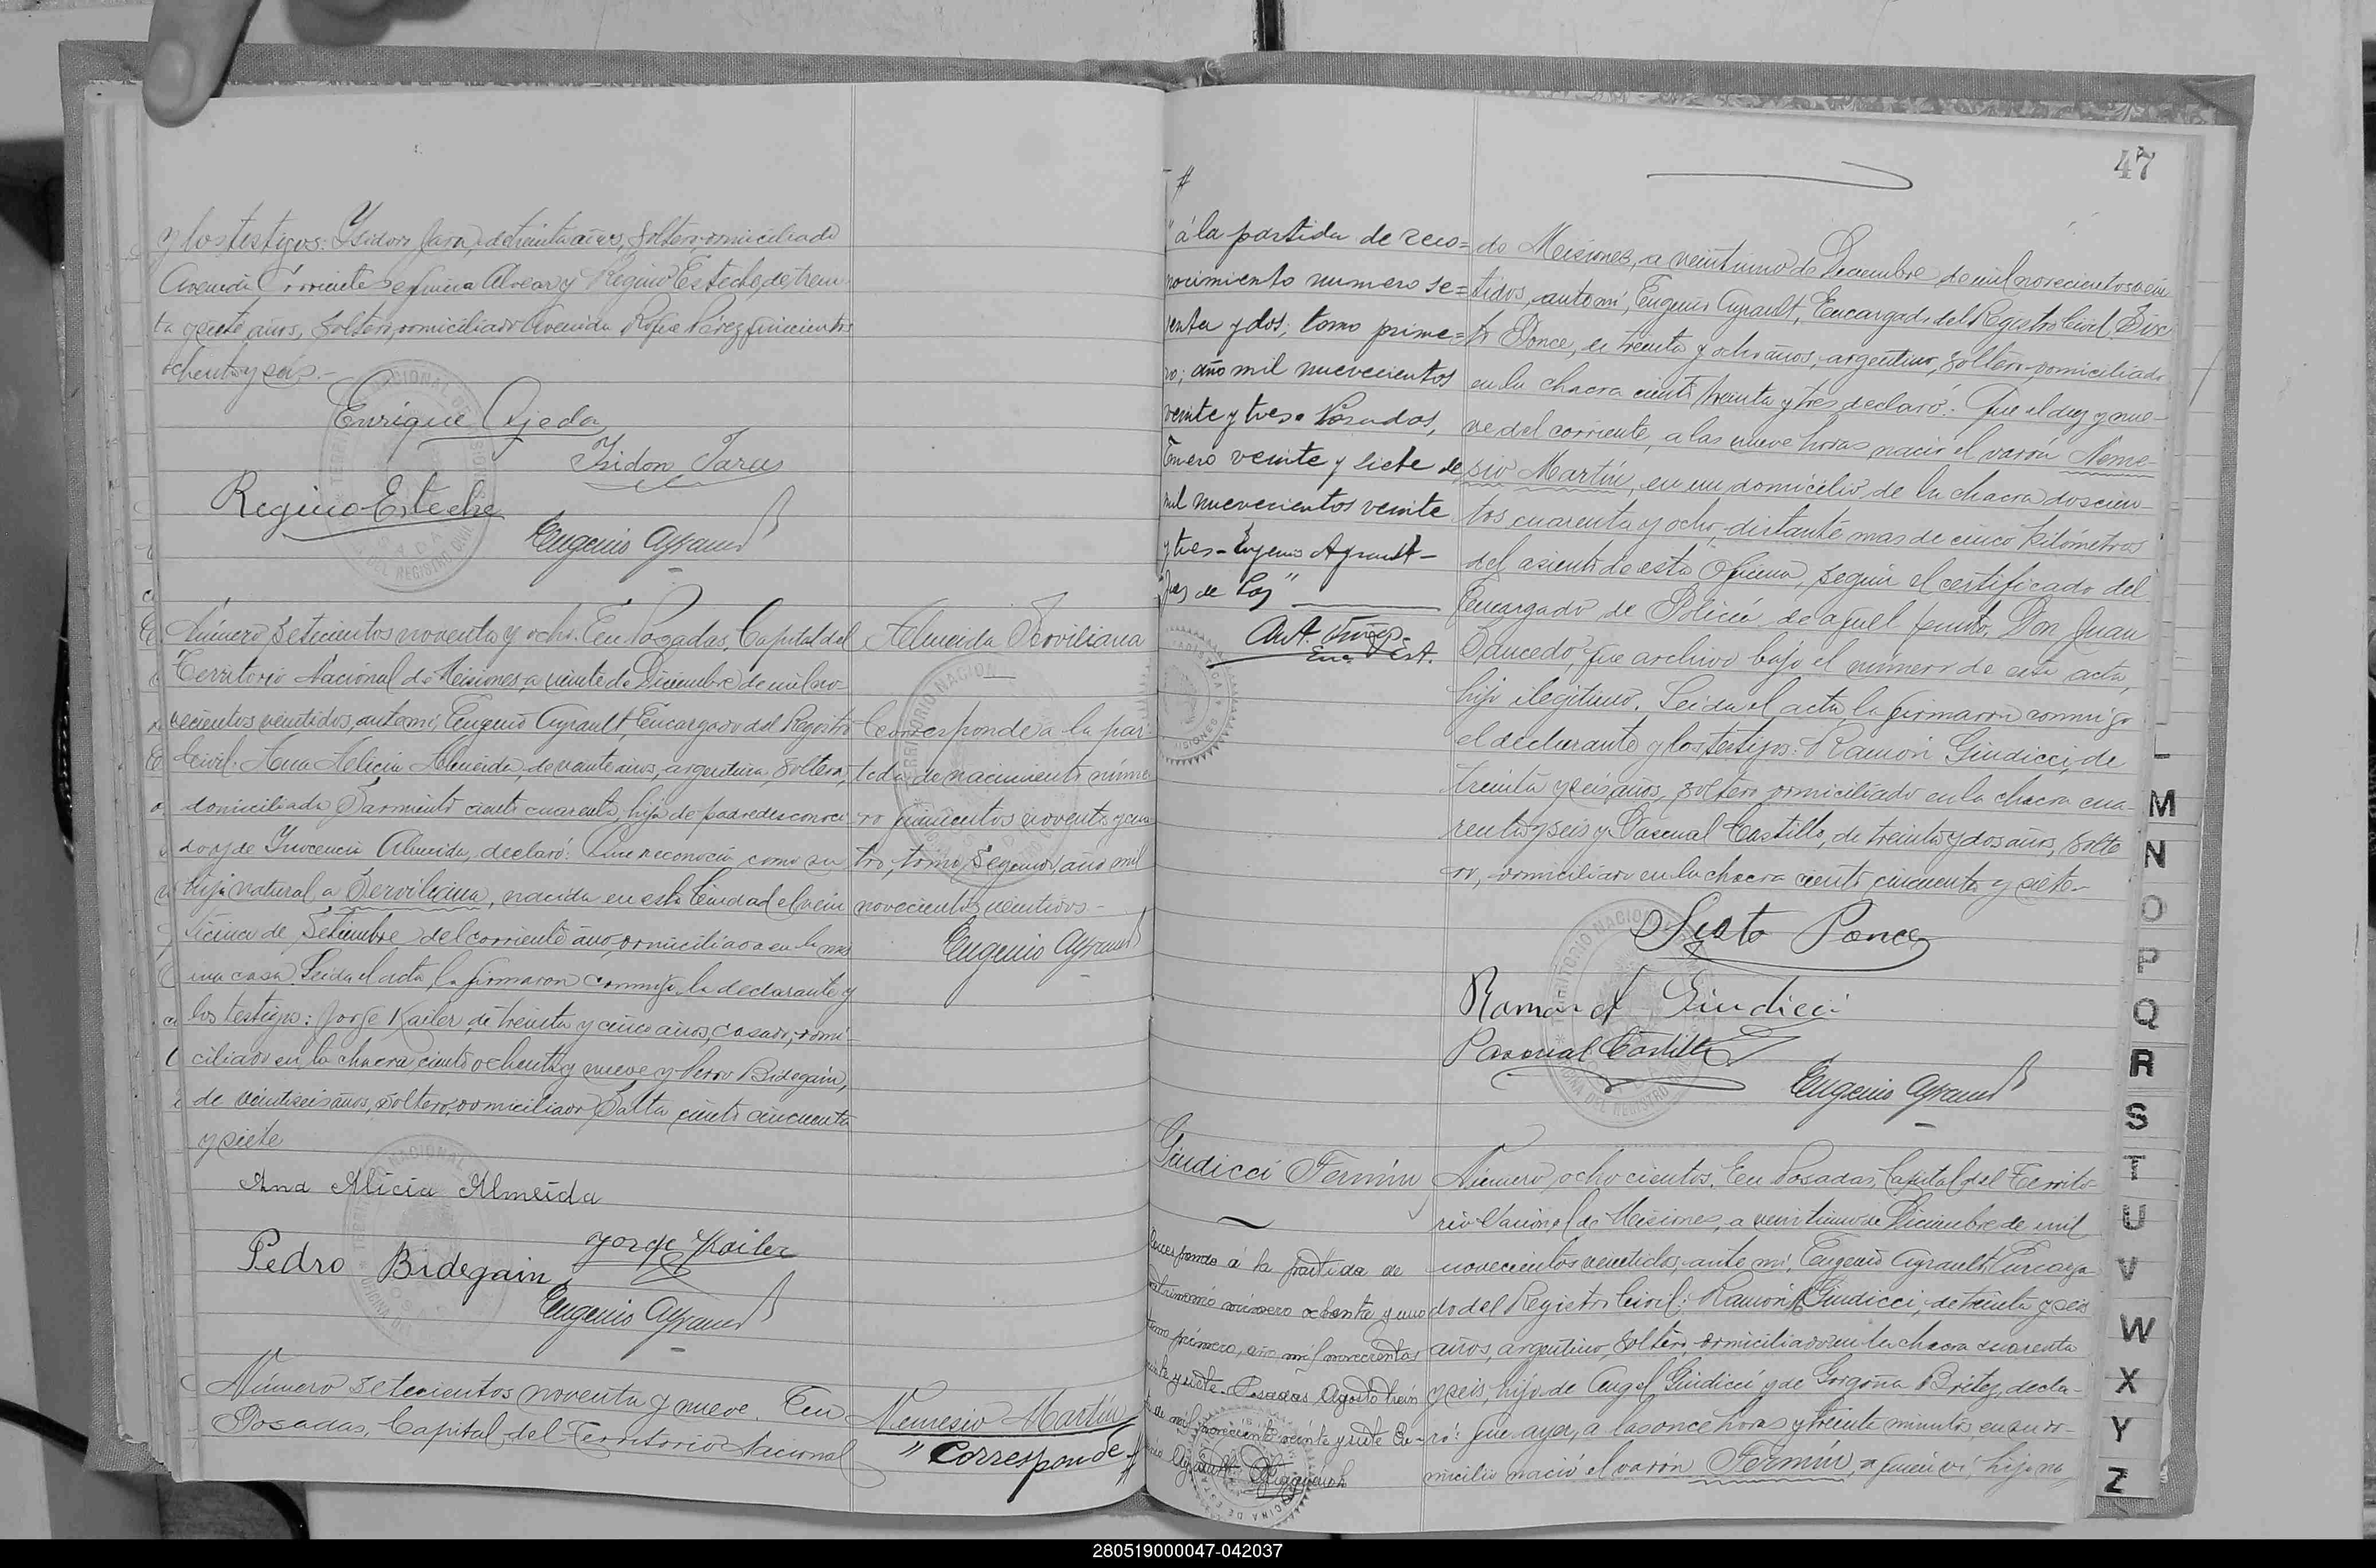 y los testigos: Ysidoro Jara, de treinta años, soltero domiciliado
Avenida Corrientes esquina Alvear y Regino Esteche, de trein
ta y siete años, soltero, domiciliado Avenida Roque Pérez quinientos
ochenta y seis.-
Enrique Ojeda
Isidoro Jara
Regino Esteche
Eugenio Ayrault
Número setecientos noventa y ocho. En Posadas, Capital del
Territorio Nacional de Misiones, a veinte de Diciembre de mil no-
vecientos veintidos, ante mí, Eugenio Ayrault, Encargado del Registro
Civil. Ana Alicia Almeida, de veinte años, argentina, soltera,
domiciliada Sarmiento ciento cuarenta, hija de padre desconoci
do y de Inocencia Almeida, declaró: Que reconocía como su
hija natural a Serviliana, nacida en esta Ciudad el vein
ticinco de Setiembre del corriente año, domiciliada en la mis
ma casa. Leida el acta, la firmaron conmigo la declarante y
los testigos: Jorge Kailer, de treinta y cinco años, casado, domi-
ciliado en la chacra ciento ochenta y nueve y Pedro Bidegain,
de veintiseis años, soltero, domiciliado Salta ciento cincuenta
y siete
Ana Alicia Almeida
Jorge Kailer
Pedro Bidegain
Eugenio Ayrault
Número setecientos noventa y nueve. En
Posadas, Capital del Territorio Nacional
Almeida Serviliana
Corresponde a la par-
tida de nacimiento núme
ro quinientos noventa y cua
tro, tomo segundo, año mil
novecientos veintidos-
Eugenio Ayrault
Nemesio Martín
" Corresponde #
47
#
"á la partida de reco=
nocimiento numero se=
senta y dos; tomo prime=
ro; año mil nuevecientos
veinte y tres. Posadas,
Enero veinte y siete de
mil nuevecientos veinte
y tres - Eugenio Ayrault -
Juez de Paz"
do Misiones, a veintiuno de Diciembre de mil novecientos vein
tidos, ante mí, Eugenio Ayrault, Encargado del Registro Civil. Six
to Ponce, de treinta y ocho años, argentino, soltero, domiciliado
en la chacra ciento treinta y tres declaró: Que el diez y nue-
ve del corriente, a las nueve horas nació el varón Neme-
sio Martín, en un domicilio de la chacra doscien-
tos cuarenta y ocho, distante mas de cinco kilómetros
del asiento de esta Oficina, según el certificado del
Encargado de Policía de aquel punto, Don Juan
Saucedo, que archivo bajo el número de esta acta,
hijo ilegitimo. Leida el acta, la firmaron conmigo
el declarante y los testigos: Ramón Giudicci, de
treinta y seis años, soltero domiciliado en la chacra cua-
renta y seis y Pascual Castillo, de treinta y dos años, solte
ro, domiciliado en la chacra ciento cincuenta y siete-
Sixto Ponce
Ramon Giudicci
Pascual Castillo
Eugenio Ayrault
Giudicci Fermín
Corresponde á la partida de
matrimonio número ochenta y uno
tomo primero, año mil novecientos
veinte y siete. Posadas, Agosto trein
ta de mil novecientos veinte y siete Eu-
genio Ayrault
Número ochocientos. En Posadas, Capital del Territo-
rio Nacional de Misiones, a veintiuno de Diciembre de mil
novecientos veintidos, ante mí, Eugenio Ayrault, Encarga
do del Registro Civil: Ramón Giudicci, de treinta y seis
años, argentino, soltero, domiciliado en la chacra cuarenta
y seis, hijo de Angel Giudicci y de Gorgoña Britez, decla-
ró: Que ayer, a las once horas y treinta minutos en su do-
micilio nació el varon Fermín, a quien vi, hijo na
L
M
N
O
P
Q
R
S
T
U
V
W
X
Y
Z
280519000047-042037